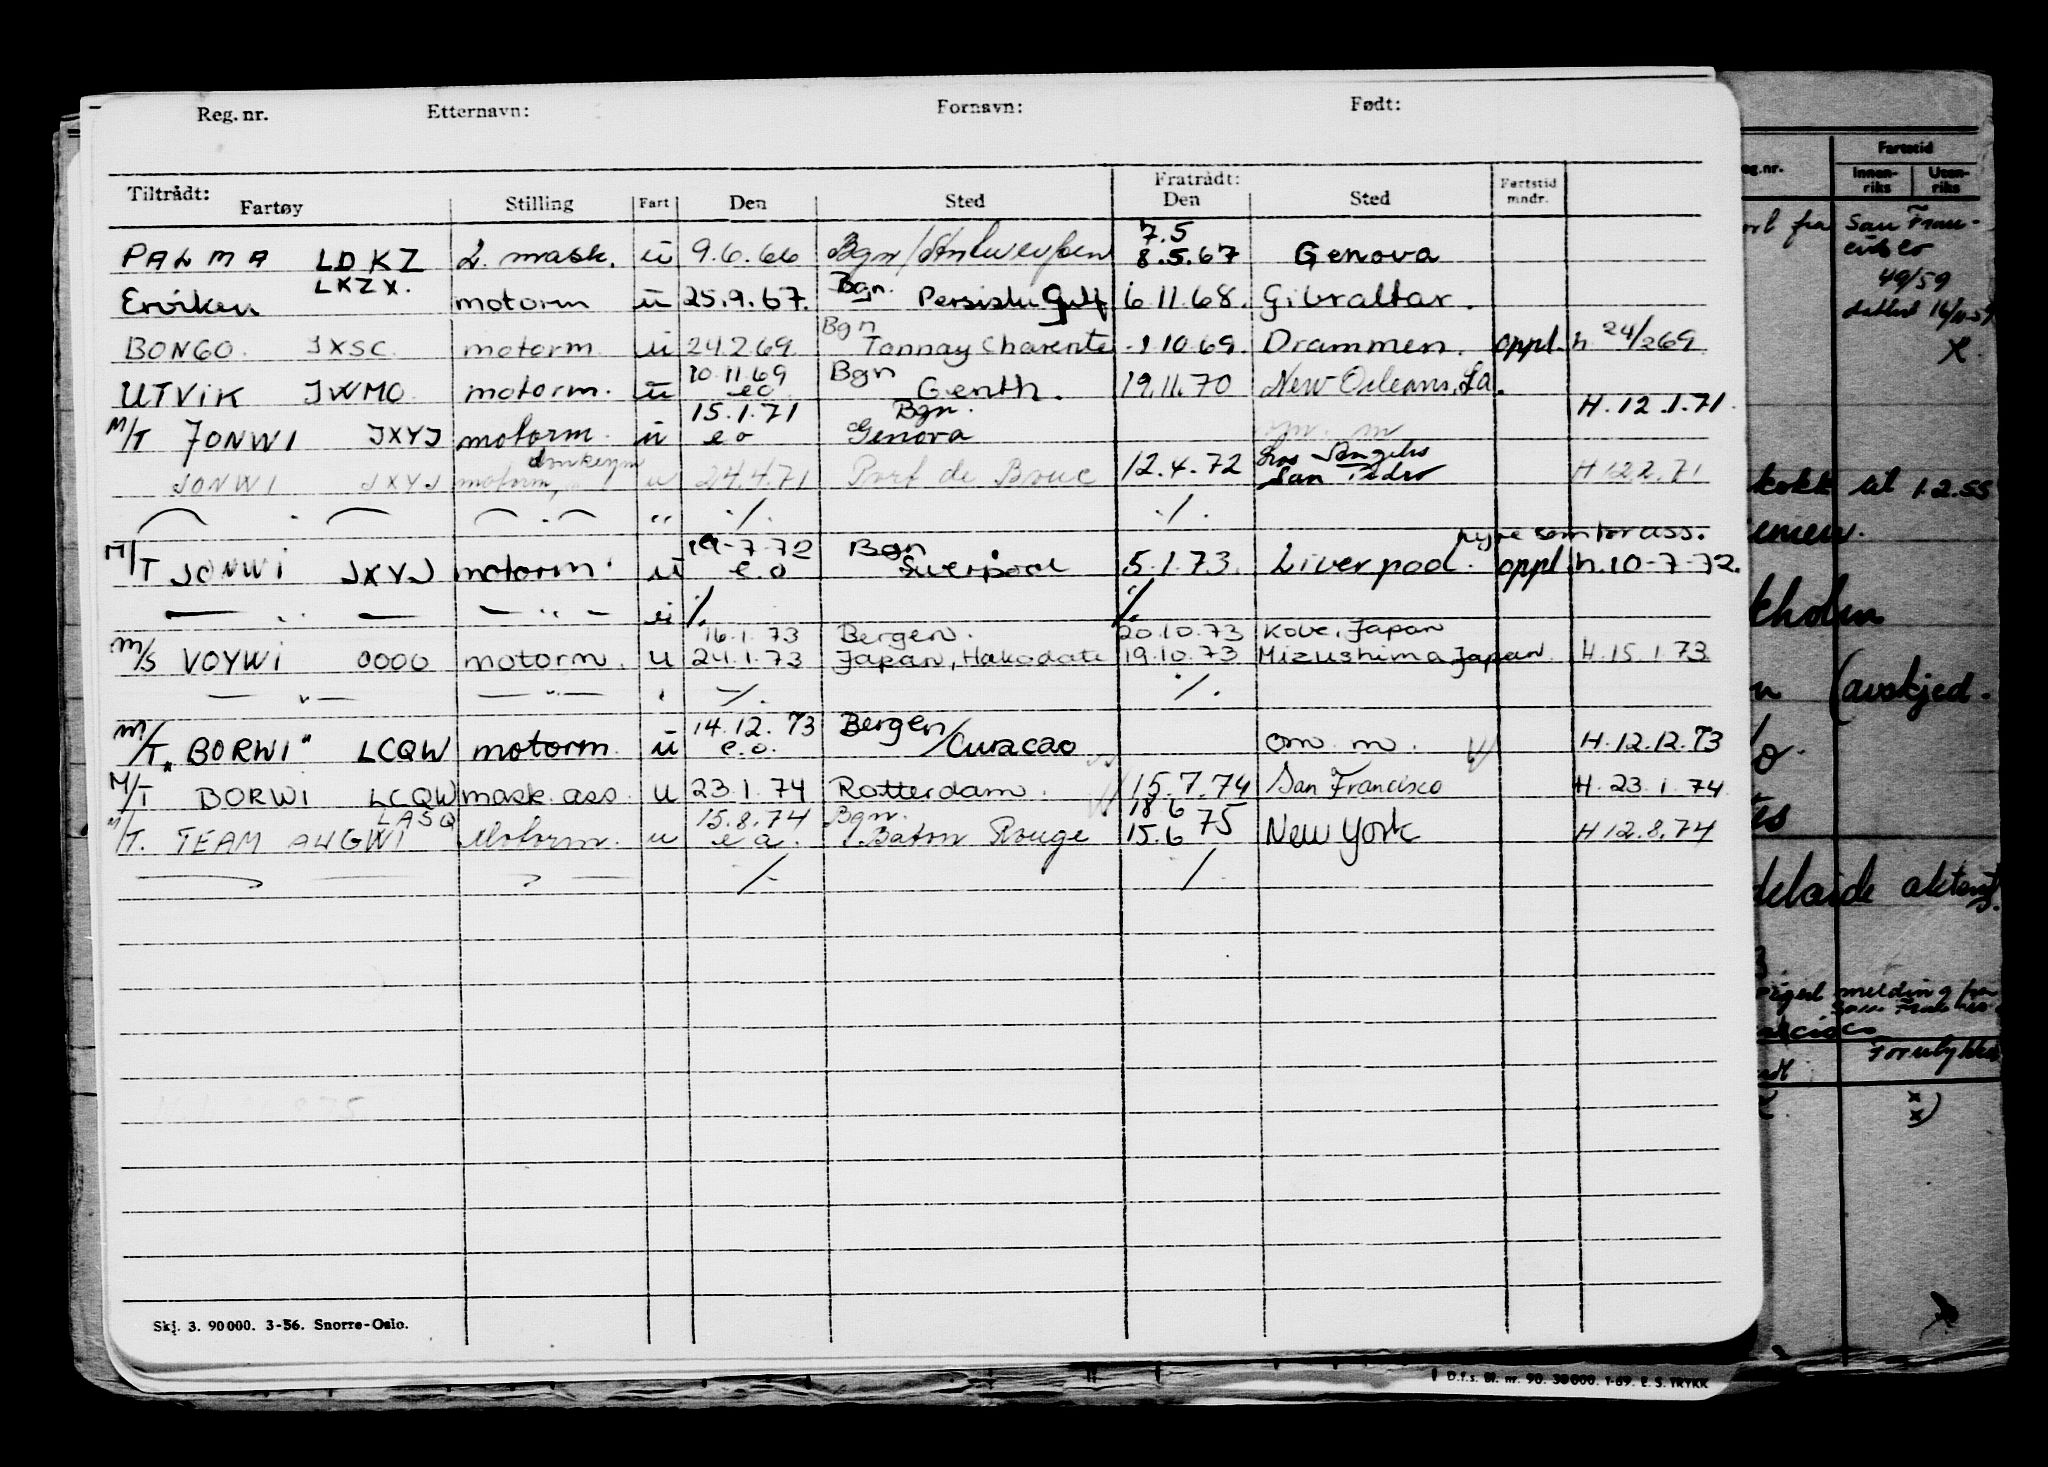 Reg. nr. Etternavn: Fornavn: Født:
Tiltrådt: Fratrådt:
Fartøy Stilling Fart Den Sted Den Sted Fartstid mndr.
7.5
PALMA LDKZ 2. mask. u 9.6.66 Bgn/Antwerpen 8.5.67 Genova
LKZX. Bgn.
Erviken motorm u 25.9.67. Persiske Gulf 6.11.68. Gibraltar.
Bgn
BONGO. JXSC. motorm u 24.2.69. Tonnay Charente 1.10.69. Drammen. oppl. h 24/2 69
10.11.69 Bgn
UTVIK JWMO motorm. u eo Genth. 19.11.70 New Orleans, La.
15.1.71 Bgn. H. 12.1.71.
M/T JONWI JXYJ motorm. u eo Genova om. m
donkeym Los Angeles
JONWI JXYJ motorm, u 24.4.71 Port de Bouc 12.4.72 San Pedro H 12.2.71
" ./. ./.
19-7-72 Bgn hyre som tor ass.
M/T JONWI JXYJ motorm. u e.o Liverpool 5.1.73. Liverpool. oppl. h. 10-7-72.
— " — — " — " ./. ./.
16.1.73 Bergen. 20.10.73 Kobe, Japan
M/S VOYWI 0000 motorm. u 24.1.73 Japan, Hakodate 19.10.73 Mizushima Japan. H. 15.1.73
— " — — " — ./. ./.
14.12.73 Bergen
M/T. "BORWI" LCQW motorm. u e.o. /Curacao om. m. H. 12.12.73
M/T BORWI LCQW mask. ass. u 23.1.74 Rotterdam. 15.7.74 San Francisco H. 23.1.74
LASQ 15.8.74 Bgn. 18 6
M/T. TEAM AUGWI Motorm. u e a. Baton Rouge 15.6 75 New York H 12.8.74
./. ./.
Skj. 3. 90000. 3-56. Snorre-Oslo.
D.f.s. Bl. nr. 90. 30000. 1-69. E. S. TRYKK
Fartstid
Innen-riks Uten-riks
fra San Fran-
cisco
49/59
x.
kokk til 1.2.55
(avskjed.
melding fra
Forulykket
x
x)